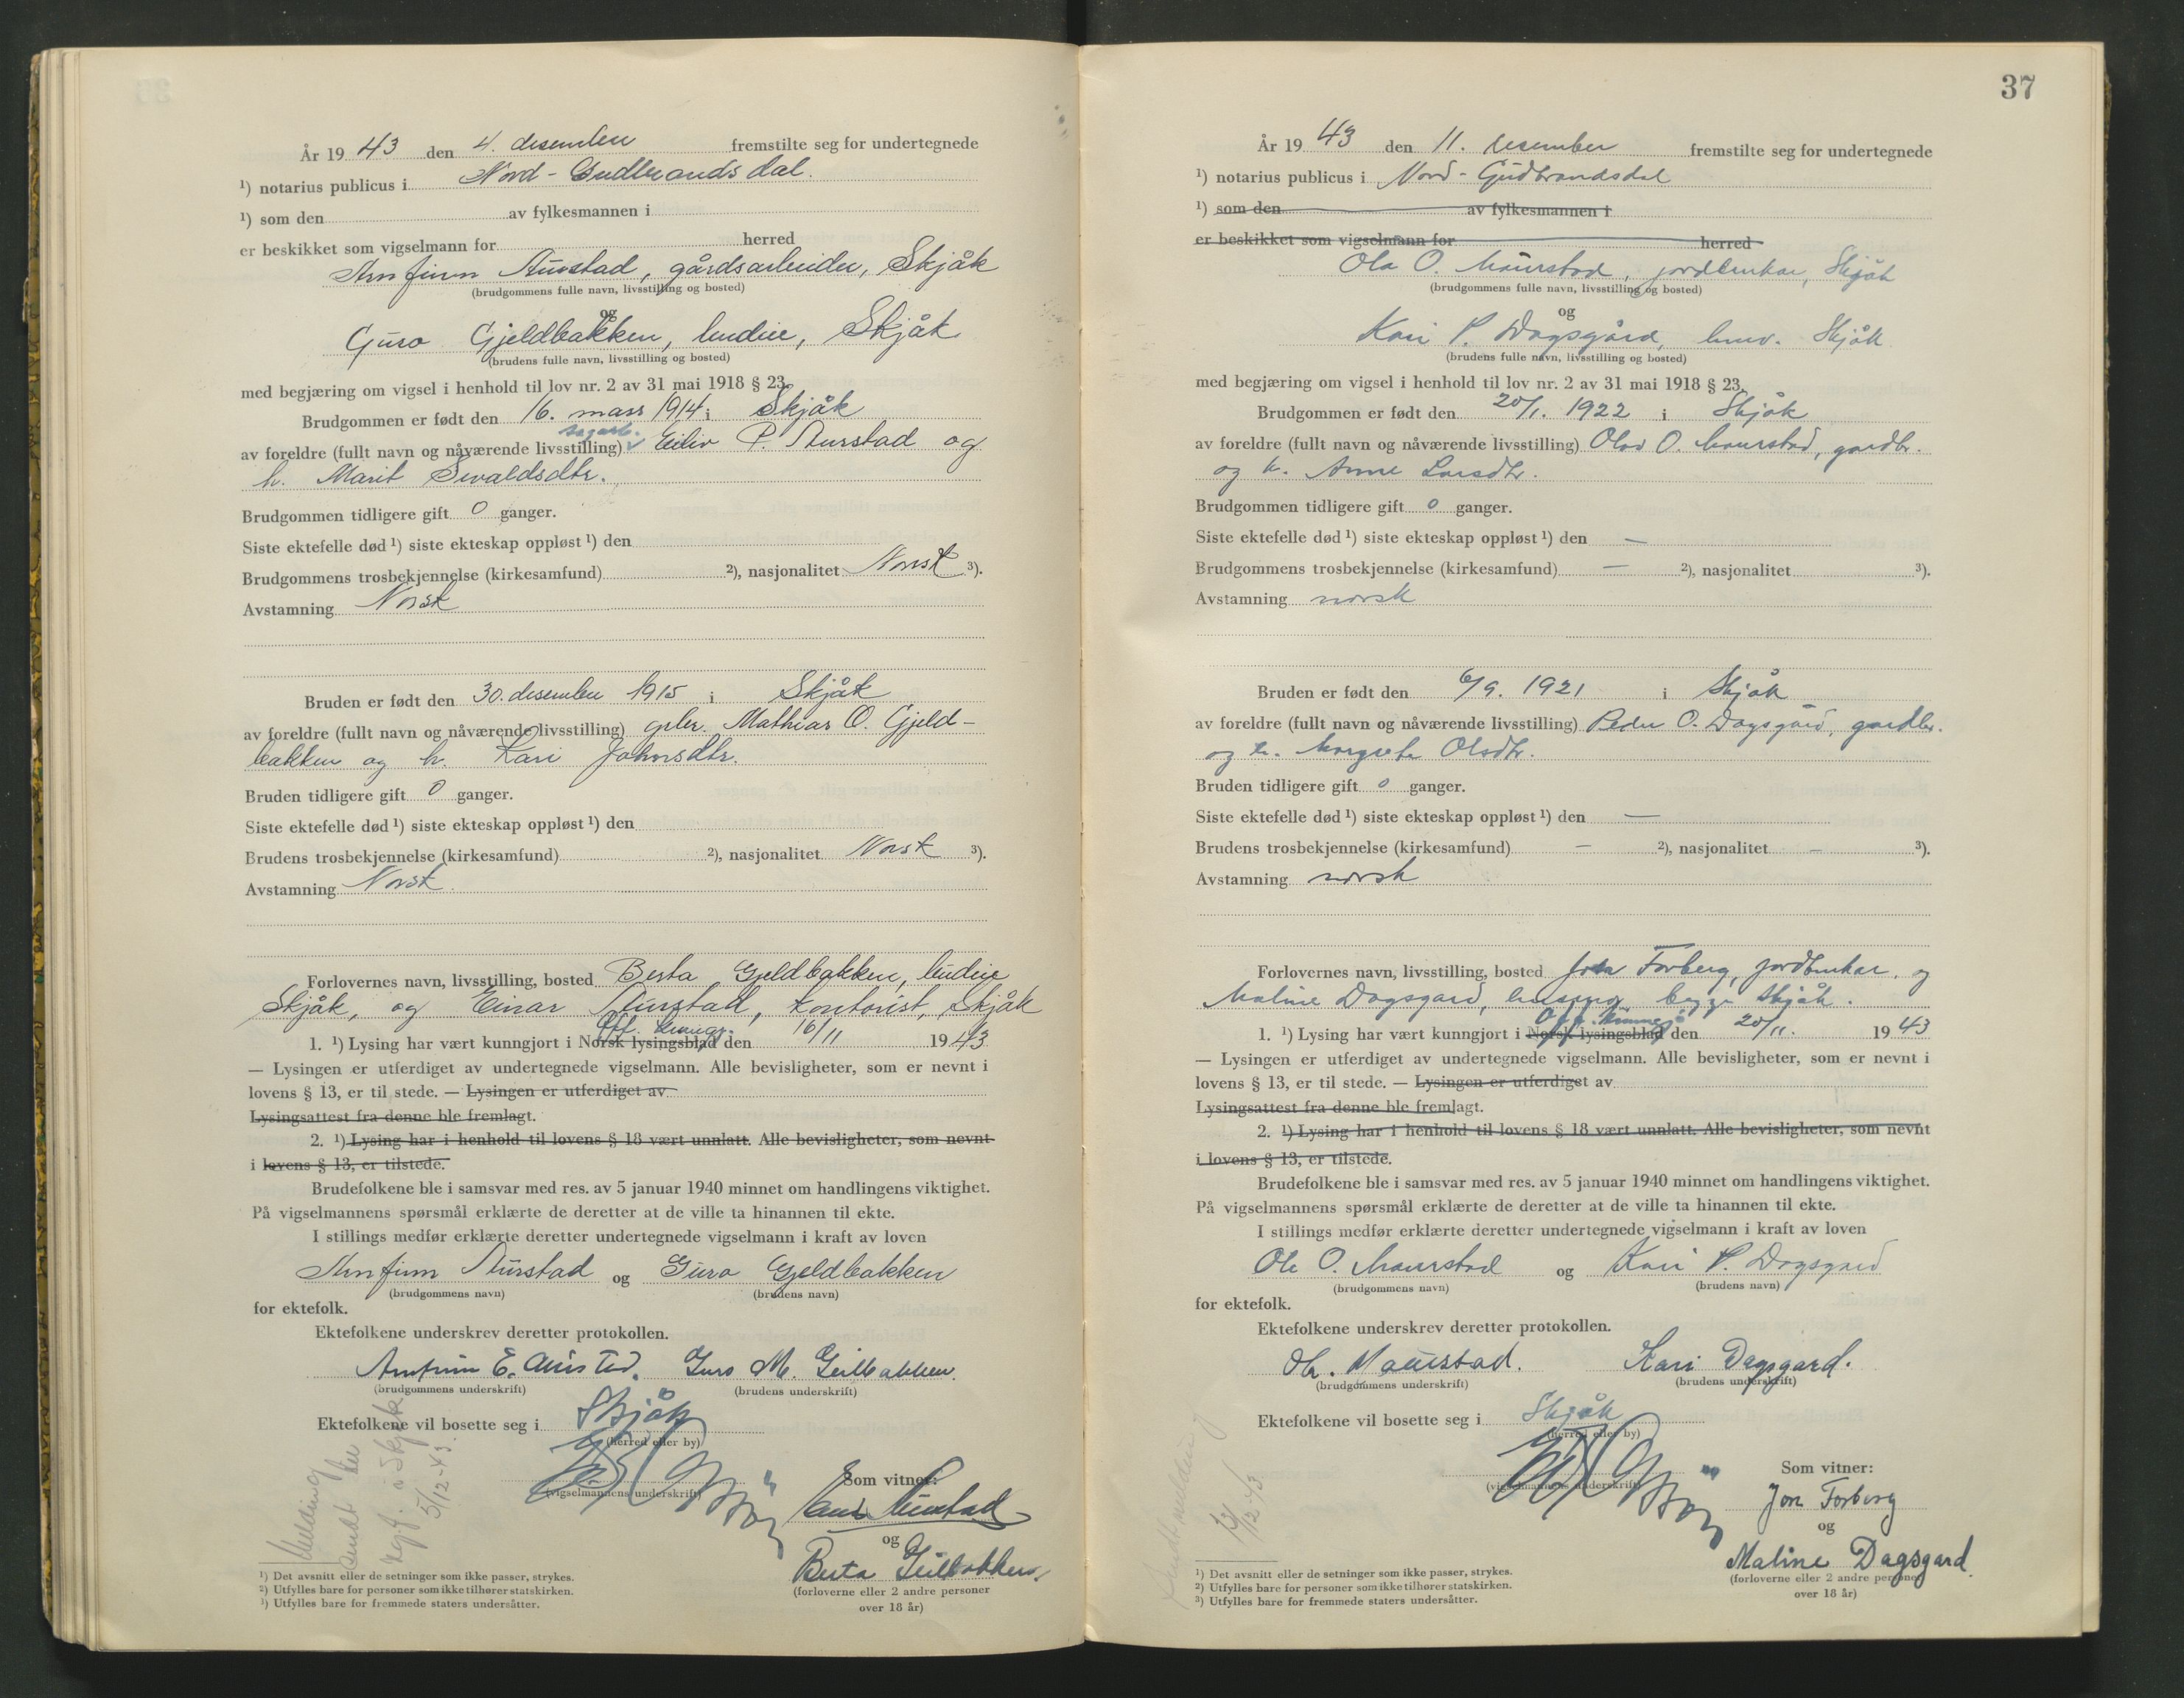 År 19 43 den 4. desember fremstilte seg for undertegnede
¹) notarius publicus i Nord-Gudbrandsdal.
¹) som den av fylkesmannen i
er beskikket som vigselmann for herred
Arnfinn Aurstad, gårdsarbeider, Skjåk
(brudgommens fulle navn, livsstilling og bosted)
og
Guro Gjeldbakken, budeie, Skjåk
(brudens fulle navn, livsstilling og bosted)
med begjæring om vigsel i henhold til lov nr. 2 av 31 mai 1918 § 23.
Brudgommen er født den 16. mars 1914 i Skjåk
sagarb.
av foreldre (fullt navn og nåværende livsstilling) Eiliv P. Aurstad og
h. Marit Sevaldsdtr.
Brudgommen tidligere gift 0 ganger.
Siste ektefelle død ¹) siste ekteskap oppløst ¹) den
Brudgommens trosbekjennelse (kirkesamfund) ²), nasjonalitet Norsk ³).
Avstamning Norsk
Bruden er født den 30. desember 1915 i Skjåk
av foreldre (fullt navn og nåværende livsstilling) gbr. Mathias O. Gjeld-
bakken og h. Kari Johnsdtr.
Bruden tidligere gift 0 ganger.
Siste ektefelle død ¹) siste ekteskap oppløst ¹) den
Brudens trosbekjennelse (kirkesamfund) ²), nasjonalitet Norsk ³).
Avstamning Norsk.
Forlovernes navn, livsstilling, bosted Berta Gjeldbakken, budeie
Skjåk, og Einar Aurstad, kontorist, Skjåk
Off. kunngj.
1. ¹) Lysing har vært kunngjort i Norsk lysingsblad den 16/11 19 43
— Lysingen er utferdiget av undertegnede vigselmann. Alle bevisligheter, som er nevnt i
lovens § 13, er til stede. — Lysingen er utferdiget av
Lysingsattest fra denne ble fremlagt.
2. ¹) Lysing har i henhold til lovens § 18 vært unnlatt. Alle bevisligheter, som nevnt
i lovens § 13, er tilstede.
Brudefolkene ble i samsvar med res. av 5 januar 1940 minnet om handlingens viktighet.
På vigselmannens spørsmål erklærte de deretter at de ville ta hinannen til ekte.
I stillings medfør erklærte deretter undertegnede vigselmann i kraft av loven
Arnfinn Aurstad og Guro Gjeldbakken
(brudgommens navn) (brudens navn)
for ektefolk.
Ektefolkene underskrev deretter protokollen.
Arnfinn E. Aurstad. Guro M. Geilbakken.
(brudgommens underskrift) (brudens underskrift)
Ektefolkene vil bosette seg i Skjåk
(herred eller by)
(vigselmannens underskrift)
Som vitner:
Einar Aurstad
og
Berta Geilbakken.
(forloverne eller 2 andre personer
over 18 år)
Melding
sendt til
i Skjåk
5/12-43.
¹) Det avsnitt eller de setninger som ikke passer, strykes.
²) Utfylles bare for personer som ikke tilhører statskirken.
³) Utfylles bare for fremmede staters undersåtter.
37
År 19 43 den 11. desember fremstilte seg for undertegnede
¹) notarius publicus i Nord-Gudbrandsdal
¹) som den av fylkesmannen i
er beskikket som vigselmann for herred
Ola O. Maurstad, jordbruker, Skjåk
(brudgommens fulle navn, livsstilling og bosted)
og
Kari P. Dagsgård, husv. Skjåk
(brudens fulle navn, livsstilling og bosted)
med begjæring om vigsel i henhold til lov nr. 2 av 31 mai 1918 § 23.
Brudgommen er født den 20/1. 1922 i Skjåk
av foreldre (fullt navn og nåværende livsstilling) Olav O. Maurstad, gardbr.
og h. Anne Larsdtr.
Brudgommen tidligere gift 0 ganger.
Siste ektefelle død ¹) siste ekteskap oppløst ¹) den —
Brudgommens trosbekjennelse (kirkesamfund) — ²), nasjonalitet ³).
Avstamning norsk
Bruden er født den 6/9. 1921 i Skjåk
av foreldre (fullt navn og nåværende livsstilling) Peder O. Dagsgård, gardbr.
og h. Margrete Olsdtr.
Bruden tidligere gift 0 ganger.
Siste ektefelle død ¹) siste ekteskap oppløst ¹) den —
Brudens trosbekjennelse (kirkesamfund) — ²), nasjonalitet — ³).
Avstamning norsk
Forlovernes navn, livsstilling, bosted Jon Forberg, jordbruker, og
Maline Dagsgard, begge Skjåk.
Off. kunngj.
1. ¹) Lysing har vært kunngjort i Norsk lysingsblad den 20/11. 19 43
— Lysingen er utferdiget av undertegnede vigselmann. Alle bevisligheter, som er nevnt i
lovens § 13, er til stede. — Lysingen er utferdiget av
Lysingsattest fra denne ble fremlagt.
2. ¹) Lysing har i henhold til lovens § 18 vært unnlatt. Alle bevisligheter, som nevnt
i lovens § 13, er tilstede.
Brudefolkene ble i samsvar med res. av 5 januar 1940 minnet om handlingens viktighet.
På vigselmannens spørsmål erklærte de deretter at de ville ta hinannen til ekte.
I stillings medfør erklærte deretter undertegnede vigselmann i kraft av loven
Ola O. Maurstad og Kari P. Dagsgard
(brudgommens navn) (brudens navn)
for ektefolk.
Ektefolkene underskrev deretter protokollen.
Ola. Maurstad. Kari Dagsgard.
(brudgommens underskrift) (brudens underskrift)
Ektefolkene vil bosette seg i Skjåk
(herred eller by)
(vigselmannens underskrift)
Som vitner:
Jon Forberg
og
Maline Dagsgard.
(forloverne eller 2 andre personer
over 18 år)
Sendt melding
¹) Det avsnitt eller de setninger som ikke passer, strykes.
²) Utfylles bare for personer som ikke tilhører statskirken.
³) Utfylles bare for fremmede staters undersåtter.